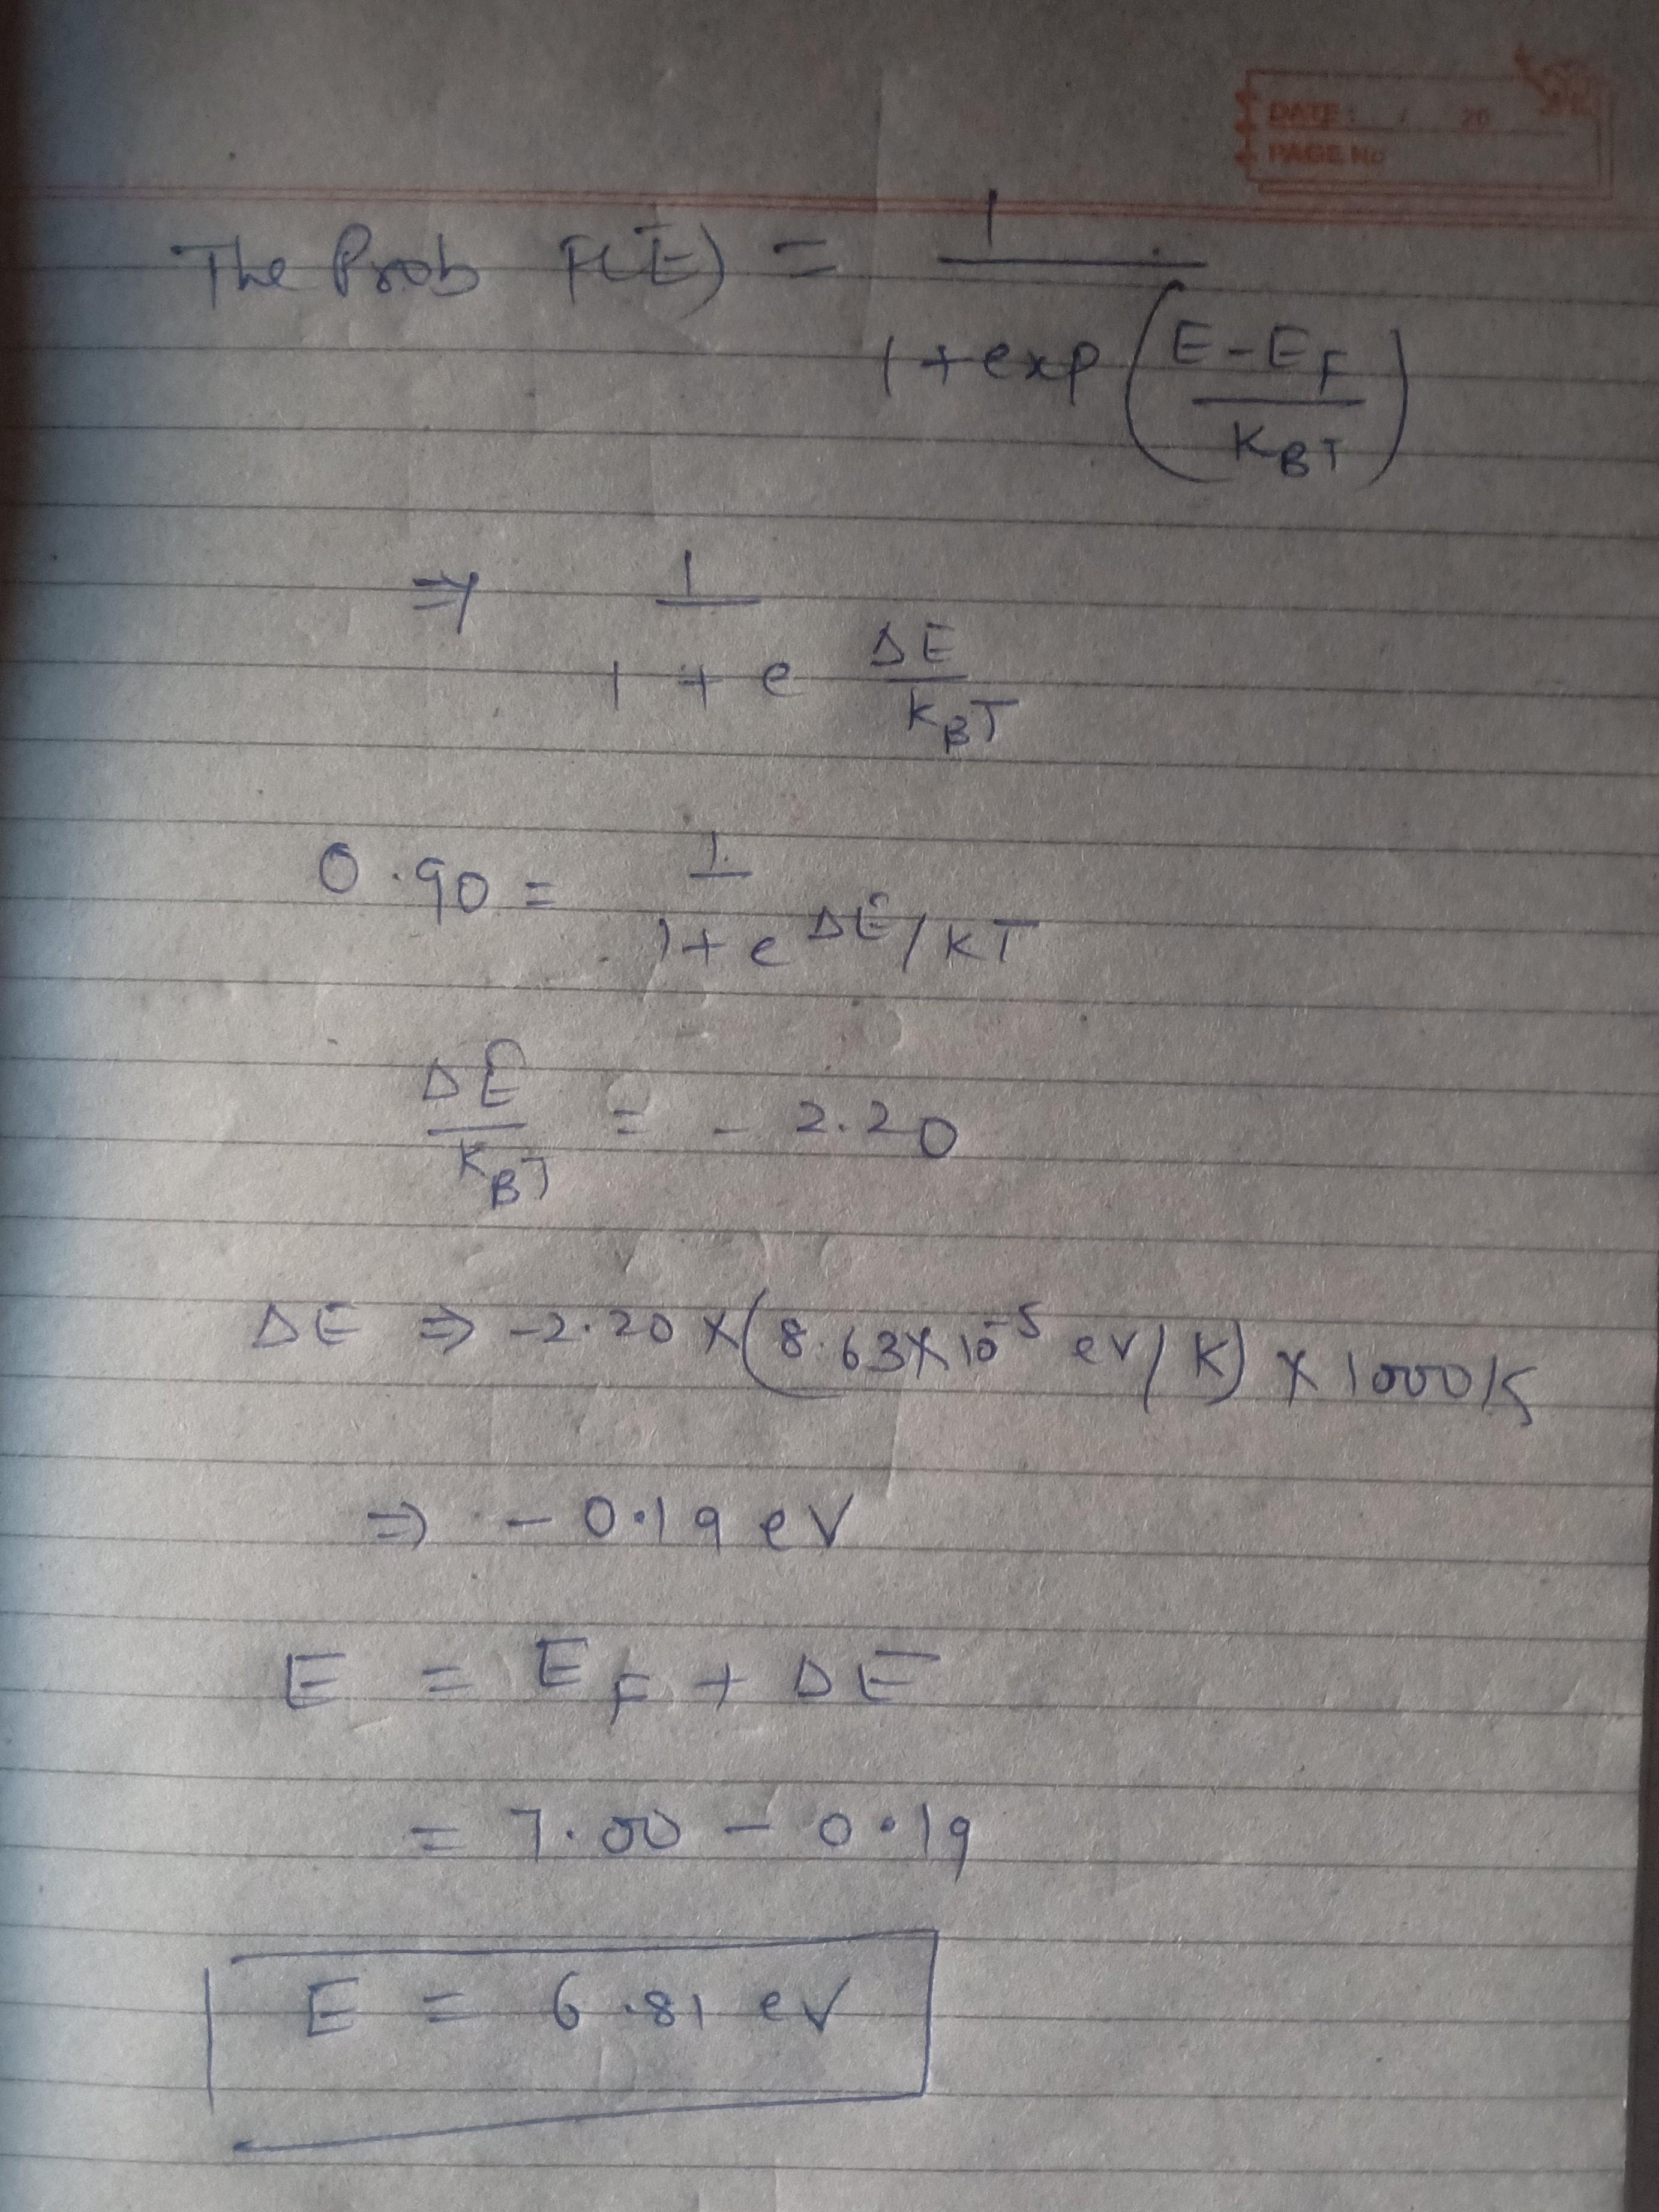 DATE: / 20
PAGE No
The Prob F(E) = 1
1 + exp (E - EF
KBT)
⇒ 1
1 + e ΔE
KBT
0.90 = 1
1 + e ΔE/KT
ΔE
KBT = - 2.20
ΔE ⇒ -2.20 X (8.63 X 10⁻⁵ eV/K) X 1000K
⇒ - 0.19 eV
E = EF + ΔE
= 7.00 - 0.19
E = 6.81 eV